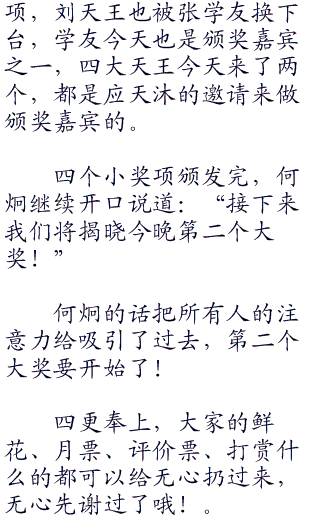 项，刘天王也被张学友换下
台，学友今天也是颁奖嘉宾
之一，四大天王今天来了两
个，都是应天沐的邀请来做
颁奖嘉宾的。
四个小奖项颁发完，何
炯继续开口说道：“接下来
我们将揭晓今晚第二个大
奖！”
何炯的话把所有人的注
意力给吸引了过去，第二个
大奖要开始了！
四更奉上，大家的鲜
花、月票、评价票、打赏什
么的都可以给无心扔过来，
无心先谢过了哦！。